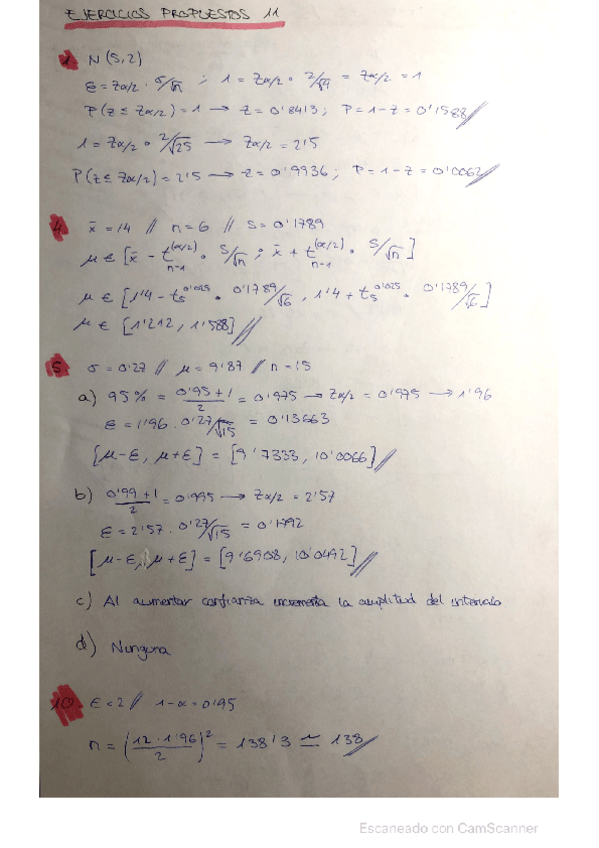 EJERCICIOS PROPUESTOS 11
1 N(5,2)
ε = Zα/2 · σ/√n ; 1 = Zα/2 · 2/√4 = Zα/2 = 1
P(z ≤ Zα/2) = 1 → z = 0'8413 ; P = 1 - z = 0'1588
1 = Zα/2 · 2/√25 → Zα/2 = 2'5
P(z ≤ Zα/2) = 2'5 → z = 0'9936 ; P = 1 - z = 0'0062
4 x̄ = 14 // n = 6 // S = 0'1789
μ ∈ [x̄ - t(α/2) n-1 · S/√n ; x̄ + t(α/2) n-1 · S/√n]
μ ∈ [1'4 - t5 0'025 · 0'1789/√6 , 1'4 + t5 0'025 · 0'1789/√6]
μ ∈ [1'212 , 1'588]
5 σ = 0'27 // μ = 9'87 // n = 15
a) 95% = 0'95 + 1 / 2 = 0'975 → Zα/2 = 0'975 → 1'96
ε = 1'96 · 0'27/√15 = 0'13663
[μ-ε, μ+ε] = [9'7333, 10'0066]
b) 0'99 + 1 / 2 = 0'995 → Zα/2 = 2'57
ε = 2'57 · 0'27/√15 = 0'1792
[μ-ε, μ+ε] = [9'6908, 10'0492]
c) Al aumentar confianza incrementa la amplitud del intervalo
d) Ninguna
10. ε < 2 // 1-α = 0'95
n = (12 · 1'96 / 2)² = 138'3 ≃ 138
Escaneado con CamScanner